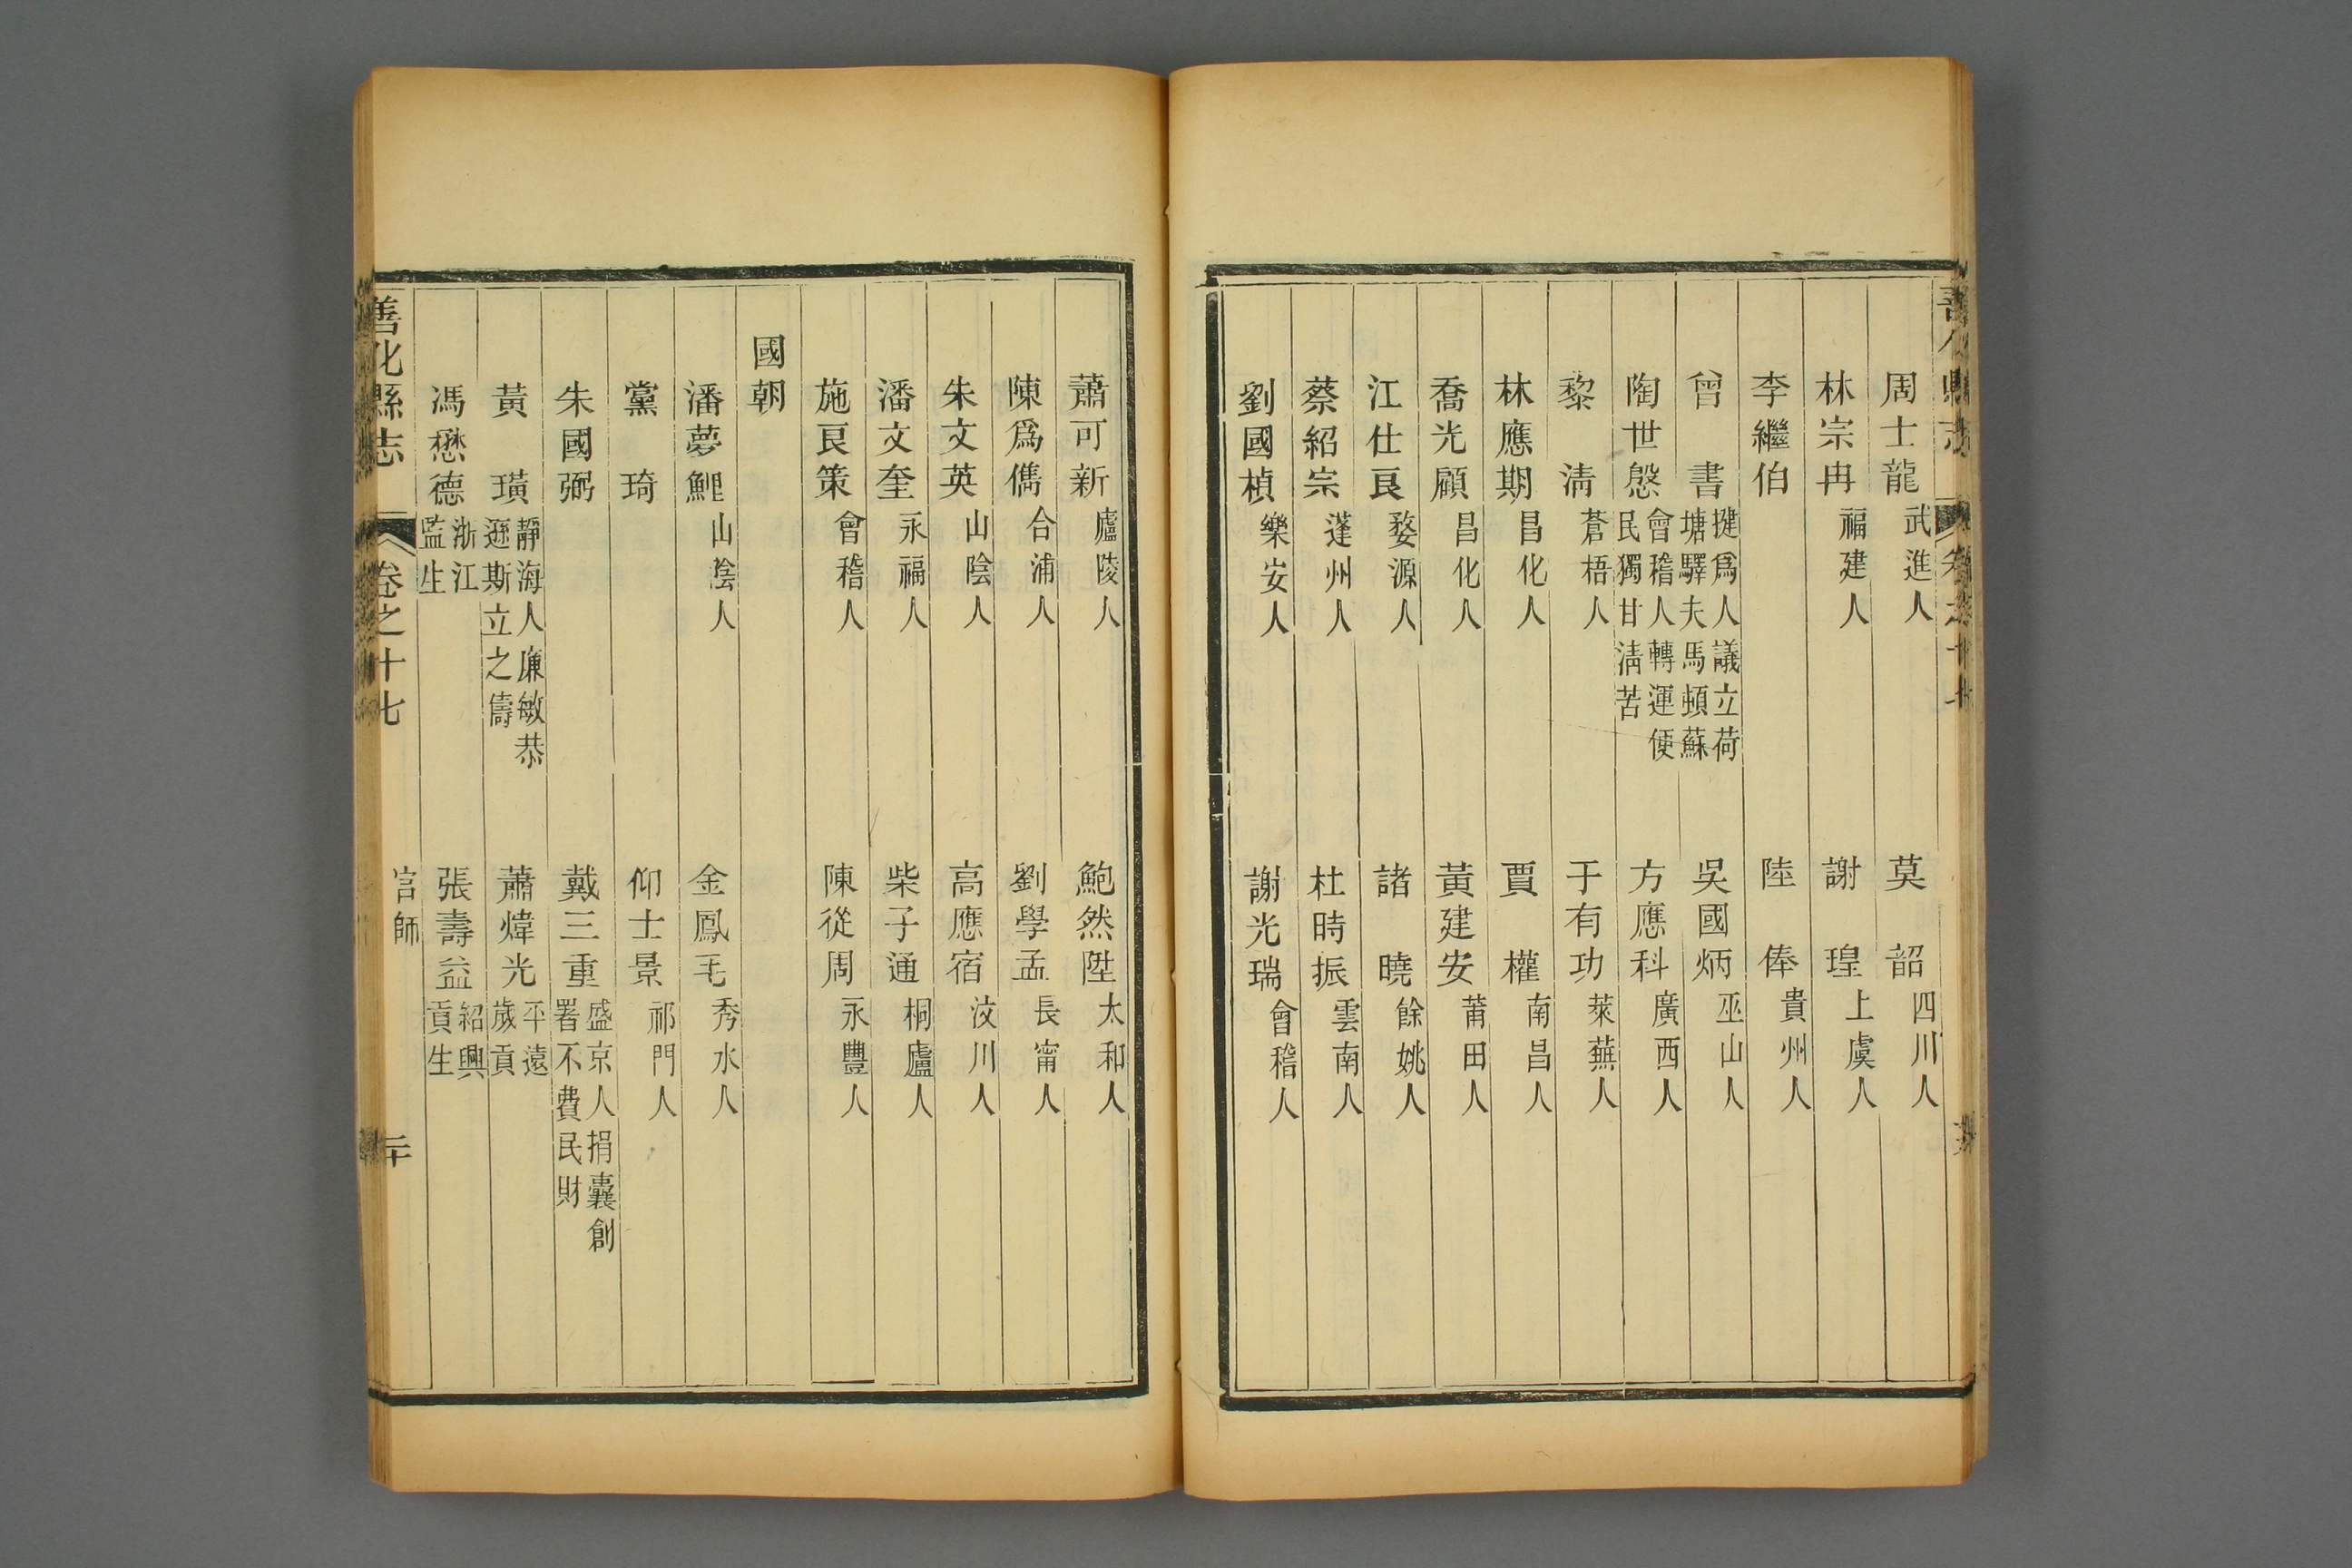 周士龍武進人 莫韶四川人
林宗冉福建人 謝瑝上虞人
李繼伯 陸俸貴州人
曾書揵爲人議立荷塘驛夫馬頓蘇 吳國炳巫山人
陶世慇會稽人轉運便民獨甘淸苦 方應科廣西人
黎淸蒼梧人 于有功萊蕪人
林應期昌化人 賈權南昌人
喬光顧昌化人 黃建安莆田人
江仕良婺源人 諸曉餘姚人
蔡紹宗蓬州人 杜時振雲南人
劉國楨樂安人 謝光瑞會稽人
蕭可新廬陵人 鮑然陞太和人
陳爲儁合浦人 劉學孟長甯人
朱文英山陰人 高應宿汶川人
潘文奎永福人 柴子通桐廬人
施良策會稽人 陳從周永豐人
國朝
潘夢鯉山陰人 金鳳毛秀水人
黨琦 仰士景祁門人
朱國弼 戴三重盛京人捐囊創署不費民財
黃璜靜海人廉敏恭遜斯立之儔 蕭煒光平遠歲貢
馮懋德浙江監生 張壽益紹興貢生
善化縣志 卷之十七 官師 二十